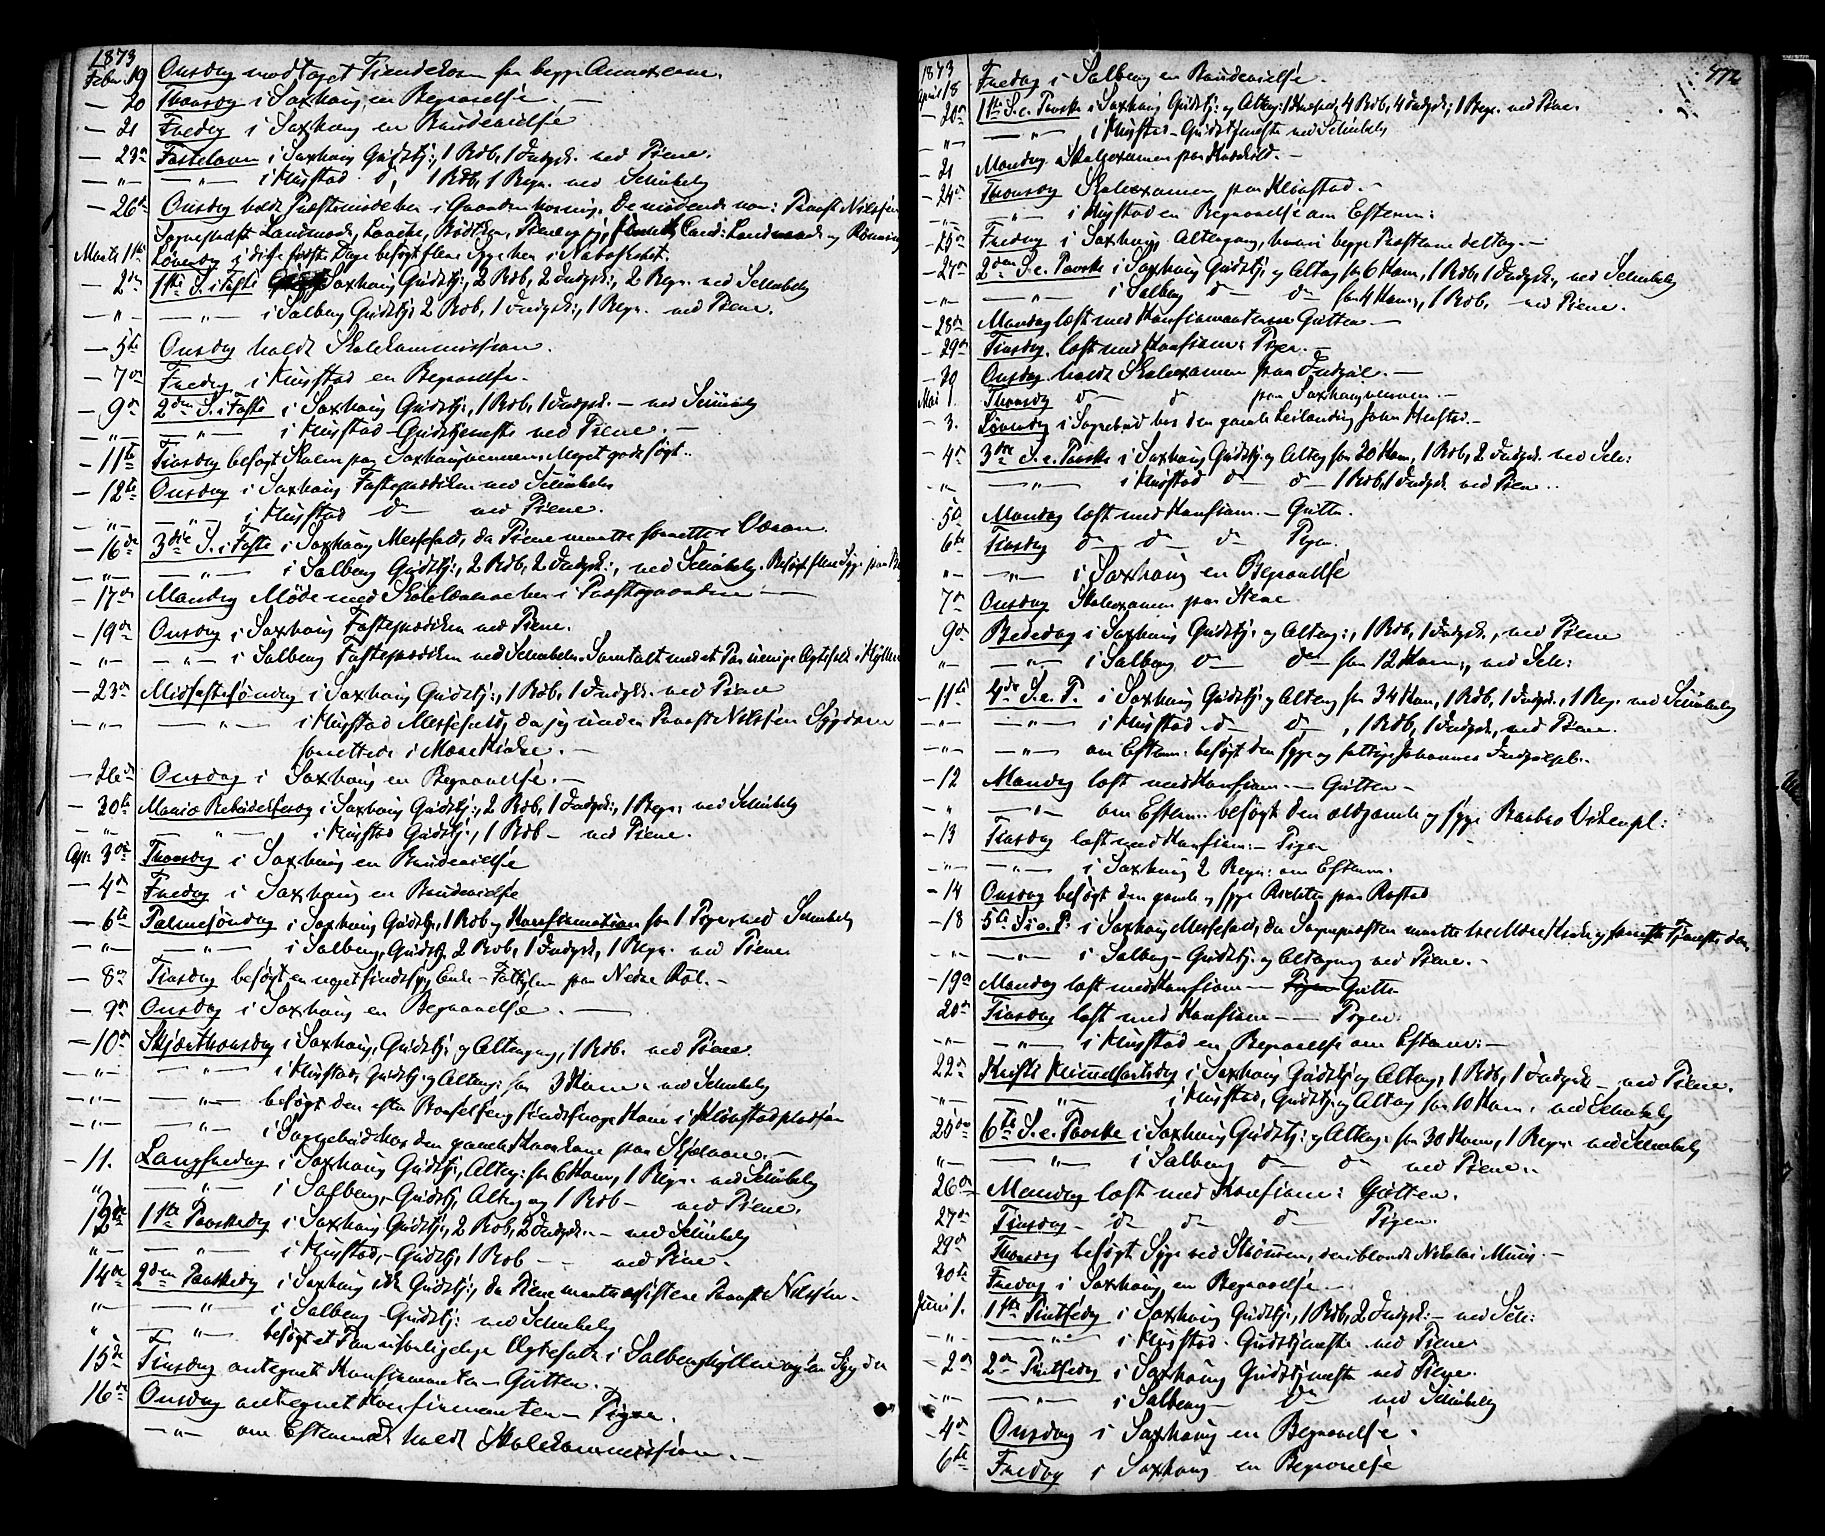 1873
Febr. 19 Onsdag modtaget Tiendekorn fra begge Annexerne.
— 20 Thorsdag i Saxhaug en Begravelse. —
— 21 Fredag i Saxhaug en Brudevielse
— 23de Fastelavn i Saxhaug Gudstj:, 1 Rdb, 1 Indgk. ved Piene.
— " — — " — i Hustad do, 1 Rdb, 1 Begr. ved Schieby
— 26de Onsdag holdt Præstemøde her i Gaarden. De mødende var: Provst Nilssen
Sognepræst Landmark, Cand: Landmark og Rønning
Marts 1ste Løverdag i disse første Dage besøgt flere Syge her i Nabolaget.
— 2den 1ste S. i Faste Saxhaug Gudstj:, 2 Rdb, 2 Indgk:, 2 Begr. ved Schieby
— " — — " — i Salberg Gudstj: 2 Rdb, 1 Indgk:, 1 Begr. ved Piene.
— 5te Onsdag holdt Skolekommission.
— 7de Fredag i Hustad en Begravelse.
— 9de 2den S. i Faste i Saxhaug Gudstj:, 1 Rdb, 1 Indgk. — ved Schieby
— " — — " — i Hustad — Gudstjeneste ved Piene. —
— 11te Tirsdag besøgt Skolen paa Saxhaug. Meget godt søgt.
— 12te Onsdag i Saxhaug Fasteprædiken ved Schieby
— " — — " — i Hustad do ved Piene.
— 16de 3die S. i Faste i Saxhaug Messefald, da Piene maatte forrette i Værran
— " — — " — i Salberg Gudstj:, 2 Rdb, 2 Indgk:, ved Schieby. Besøgt flere Syge
— 17de Mandag Møde med Skolelærerne her i Præstegaarden —
— 19de Onsdag i Saxhaug Fasteprædiken ved Piene.
— " — — " — i Salberg Fasteprædiken ved Schieby. Samtalt med et Par uenige Ægtefolk i
— 23de Midfastesøndag i Saxhaug Gudstj:, 1 Rdb, 1 Indgk. ved Piene
— " — — " — i Hustad Messefald, da jeg under Provst Nilssens Sygdom
forrettede i Mære Kirke. —
— 26de Onsdag i Saxhaug en Begravelse. —
— 30te Mariæ Bebudelsesdag i Saxhaug Gudstj:, 2 Rdb, 1 Indgk:, 1 Begr: ved Schieby
— " — — " — i Hustad Gudstj:, 1 Rdb — ved Piene.
Apr: 3die Thorsdag i Saxhaug en Brudevielse
— 4de Fredag i Saxhaug en Brudevielse
— 6te Palmesøndag i Saxhaug Gudstj:, 1 Rdb og Konfirmation for 1 Pige, ved Schieby
— " — — " — i Salberg, Gudstj, 2 Rdb, 1 Indgk, 1 Begr. ved Piene
— 8de Tirsdag besøgt en meget sindssyg Enke — Fattiglem paa Nedre Rol. —
— 9de Onsdag i Saxhaug en Begravelse. —
— 10de Skjærthorsdag i Saxhaug, Gudstj: og Altergang, 1 Rdb. ved Piene
— " — — " — i Hustad, Gudstj: og Alterg: for 3 Kom: ved Schieby
— " — — " — besøgt den efter Barselseng sindssvage Kone i
— " — — " — i Sognebud hos den gamle
— 11. Langfredag i Saxhaug Gudstj:, Alterg: for 6 Kom, 1 Begr. ved Schieby
" — — " — i Salberg, Gudstj, Alterg og 1 Rdb — ved Piene.
13de 1ste Paaskedag i Saxhaug Gudstj:, 2 Rdb, 2 Indgk. — ved Schieby
" — — " — i Hustad, — Gudstj, 1 Rdb — ved Piene.
14de 2den Paaskedag i Saxhaug ikke Gudstj:, da Piene maatte assistere Provst Nilssen.
" — — " — i Salberg Gudstj: ved Schieby
" — " — besøgt et Par uforligelige Ægtefolk i Salberg
15de Tirsdag antegnet Konfirmanter — Gutter. —
16de Onsdag antegnet Konfirmanter — Piger.
— " — om Efterm holdt Skolekommission. —
472
1873
April 18 Fredag i Salberg en Brudevielse.
— 20de 1ste S. e. Paaske i Saxhaug Gudstj: og Alterg: 4 Rdb, 4 Indgk:, 1 Begr. ved Piene.
— " — — " — i Hustad — Gudstjeneste ved Schieby
— 21 Mandag Skoleexamen paa —
— 24de Thorsdag Skoleexamen paa —
" — " — i Hustad en Begravelse om Efterm:
— 25de Fredag i Saxhaug Altergang, hvori begge Præsterne deltog. —
— 27de 2den S. e. Paaske i Saxhaug Gudstj: og Alterg for 6 Kom, 1 Rdb, 1 Indgk:, ved Schieby
— " — — " — i Salberg do do for 4 Kom:, 1 Rdb. ved Piene.
— 28de Mandag læst med Konfirmanterne Gutter —
— 29de Tirsdag læst med Konfirm: Piger. —
— 30 Onsdag holdt Skoleexamen paa —
Mai 1. Thorsdag do do paa —
— 3. Løverdag i Sognebud hos den gamle John —
— 4de 3die S. e. Paaske i Saxhaug Gudstj: og Alterg for 20 Kom, 1 Rdb, 2 Indgk. ved Sch:
" — " — i Hustad do do 1 Rdb, 1 Indgk ved Piene.
5te Mandag læst med Konfirm. — Gutter.
6te Tirsdag do do do Piger.
" — " — i Saxhaug en Begravelse
7de Onsdag Skoleexamen paa Stene
9de Bededag i Saxhaug Gudstj: og Alterg:, 1 Rdb, 1 Indgk:, ved Piene
" — " — i Salberg do do for 12 Kom:, ved Sch:
— 11te 4de S. e. P. i Saxhaug Gudstj: og Alterg for 34 Kom, 1 Rdb, 1 Indgk:, 1 Begr. ved Schieby
— " — — " — i Hustad do do, 1 Rdb, 1 Indgk, ved Piene.
— " — — " — om Efterm: besøgt den syge og fattige Johannes
— 12 Mandag læst med Konfirm. — Gutter —
— " — " — om Efterm: besøgt den ældgamle og syge Barbro
— 13 Tirsdag læst med Konfirm: — Piger
— " — — " — i Saxhaug 2 Begr: om Efterm.
— 14 Onsdag besøgt den gamle og syge paa Rostad
— 18 5te S. e. P. i Saxhaug Messefald, da Sognepræsten maatte til Mære Kirke og forrette Tjeneste
— " — — " — i Salberg — Gudstj: og Altergang ved Piene. —
— 19de Mandag læst med Konfirm — Gutter
20de Tirsdag læst med Konfirm — Piger.
— " — — " — i Hustad en Begravelse om Efterm: —
22de Kristi Himmelfartsdag i Saxhaug Gudstj: og Alterg, 1 Rdb, 1 Indgk — ved Piene.
— " — — " — i Hustad, Gudstj: og Alterg for 10 Kom: ved Schieby
25de 6te S. e. Paaske i Saxhaug Gudstj: og Alterg: for 30 Kom, 1 Begr: ved Schieby
" — " — i Salberg do do ved Piene.
26de Mandag læst med Konfirm: Gutter.
27de Tirsdag — do do do Piger.
29de Thorsdag besøgt Syge ved Strømmen, deriblandt Nikolai —
30te Fredag i Saxhaug en Begravelse. —
Juni 1. 1ste Pintsedag i Saxhaug Gudstj:, 1 Rdb, 2 Indgk: — ved Sch:
— " — — " — i Hustad. Gudstjeneste ved Piene
— 2de 2den Pintsedag i Saxhaug Gudstjeneste ved Piene.
— " — — " — i Salberg — do ved Schieby
— 4de Onsdag i Saxhaug en Begravelse.
6te Fredag i Saxhaug en Begravelse